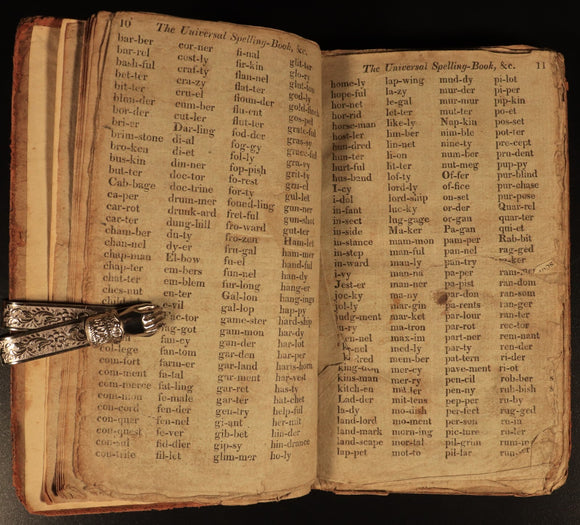 10 The Universal Spelling-Book, &c.
bar-ber
bar-rel
bash-ful
bet-ter
bit-ter
blun-der
bor-der
bri-er
brim-stone
bro-ken
bus-kin
but-ter
Cab-bage
ca-per
car-rot
car-ter
cham-ber
chan-nel
chap-man
chap-ter
chat-ter
ches-nut
col-lege
com-fort
com-ment
com-merce
com-mon
con-cord
con-quer
con-quest
con-sul
con-trite
cor-ner
cost-ly
craf-ty
cra-zy
cru-el
cum-ber
cut-ler
Dar-ling
di-al
di-et
din-ner
doc-tor
doc-trine
drum-mer
drunk-ard
dung-hill
du-ty
dy-er
El-bow
em-bers
em-blem
en-ter
evil
fac-tor
fag-got
fan-cy
fan-tom
farm-er
fa-tal
fat-ling
fe-male
fen-der
fen-nel
fe-ver
fid-dler
fil-let
fi-nal
fir-kin
flan-nel
flat-ter
floun-der
flu-ent
flut-ter
fod-der
fog-gy
fol-ly
fop-pish
fo-rest
for-ty
found-ling
fret-ful
fro-ward
fro-zen
fru-gal
fu-el
fun-nel
fur-long
Gal-lon
gal-lop
game-ster
gam-mon
gan-der
gar-den
gar-land
gar-ment
gar-ret
gar-ter
gen-try
gi-ant
gib-bet
gip-sy
glim-mer
glit-ter
glo-ry
glut-ton
god-ly
gos-pel
grate-ful
gra-vy
grit-ty
gru-el
gul-let
gun-ner
gun-shot
gut-ter
Ham-let
ham-mer
hand-ful
han-dy
hang-er
hang-ings
hap-py
hard-ship
har-dy
har-lot
har-per
harts-horn
har-vest
has-ty
hat-chet
help-ful
her-mit
hin-der
hin-drance
ho-ly
The Universal Spelling-Book, &c. 11
home-ly
hope-ful
hor-net
hor-rid
horse-man
host-ler
hun-dred
hun-ter
hurt-ful
hus-band
I-cy
i-dol
in-fant
in-sect
in-side
in-stance
in-step
in-ward
i-vy
Jest-er
joc-ky
jol-ly
judg-ment
ju-ry
Ken-nel
ker-nel
kin-dred
king-dom
kins-man
kitch-en
Lad-der
la-dy
land-lord
land-mark
land-scape
lap-pet
lap-wing
la-zy
le-gal
let-ter
like-ly
lim-ber
lin-net
li-on
lit-ter
lof-ty
lord-ly
lord-ship
luc-ky
lug-gage
Ma-ker
mam-mon
man-ful
man-ly
man-na
man-ner
ma-ny
mar-gin
mar-ket
ma-tron
max-im
med-ly
mem-ber
mer-cy
mer-ry
mit-ten
mo-dish
mo-ment
morn-ing
mor-tal
mot-to
mud-dy
mur-der
mur-mur
mut-ter
Nap-kin
nim-ble
nine-ty
num-ber
nut-meg
Of-fer
of-fice
on-set
or-der
or-gan
Pa-gan
pam-per
pan-nel
pan-try
pa-per
pa-pist
par-don
pa-rents
par-lour
par-rot
part-ner
par-ty
pat-tern
pave-ment
pen-cil
pen-ny
pep-per
per-fect
per-son
pic-ture
pil-grim
pil-lar
pi-lot
pi-per
pip-kin
po-et
pos-set
pot-ter
pre-cept
pru-dent
pup-py
pur-blind
pur-chase
pur-pose
Quar-rel
quar-ter
qui-et
Rab-bit
rag-ged
ran-dom
ran-som
ran-ger
ran-ter
rec-tor
ren-nant
ren-der
ri-der
ri-ot
rob-ber
rub-bish
ru-by
rug-ged
ru-in
ru-ler